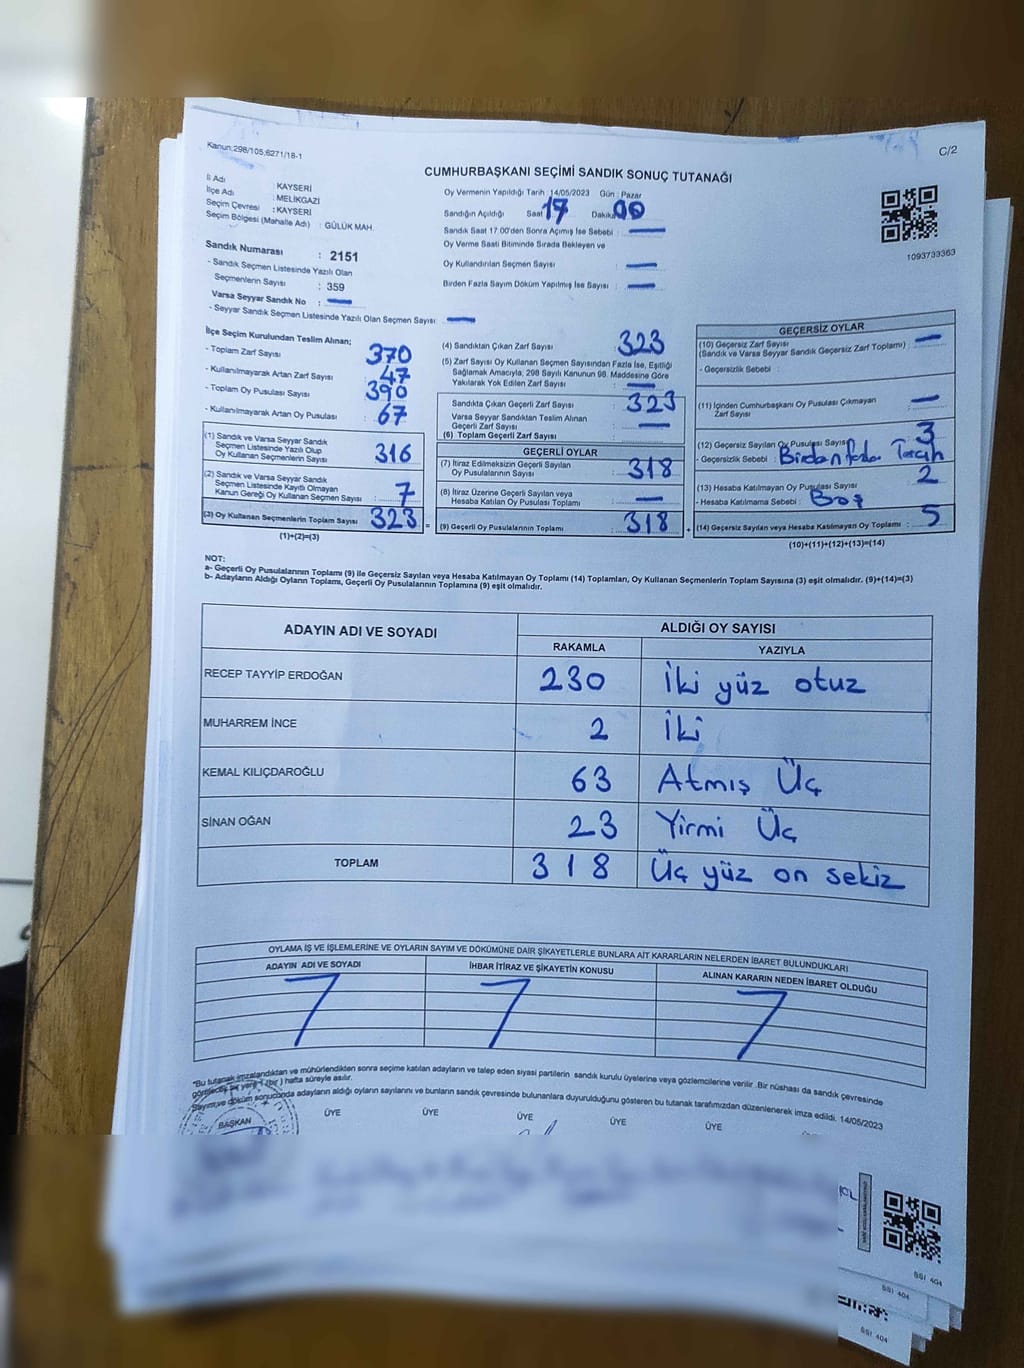 Kanun;298/105;6271/18-1
C/2
CUMHURBAŞKANI SEÇİMİ SANDIK SONUÇ TUTANAĞI
İl Adı : KAYSERİ
İlçe Adı : MELİKGAZİ
Seçim Çevresi : KAYSERİ
Seçim Bölgesi (Mahalle Adı) : GÜLÜK MAH.
Sandık Numarası : 2151
- Sandık Seçmen Listesinde Yazılı Olan
Seçmenlerin Sayısı : 359
Varsa Seyyar Sandık No : —
- Seyyar Sandık Seçmen Listesinde Yazılı Olan Seçmen Sayısı : —
Oy Vermenin Yapıldığı Tarih : 14/05/2023 Gün : Pazar
Sandığın Açıldığı Saat 17 Dakika 00
Sandık Saat 17:00'den Sonra Açılmış İse Sebebi : —
Oy Verme Saati Bitiminde Sırada Bekleyen ve
Oy Kullandırılan Seçmen Sayısı : —
Birden Fazla Sayım Döküm Yapılmış İse Sayısı : —
1093733363
İlçe Seçim Kurulundan Teslim Alınan;
- Toplam Zarf Sayısı : 370
- Kullanılmayarak Artan Zarf Sayısı : 47
- Toplam Oy Pusulası Sayısı : 390
- Kullanılmayarak Artan Oy Pusulası : 67
(1) Sandık ve Varsa Seyyar Sandık
Seçmen Listesinde Yazılı Olup
Oy Kullanan Seçmenlerin Sayısı : 316
(2) Sandık ve Varsa Seyyar Sandık
Seçmen Listesinde Kayıtlı Olmayan
Kanun Gereği Oy Kullanan Seçmen Sayısı : 7
(3) Oy Kullanan Seçmenlerin Toplam Sayısı : 323
(1)+(2)=(3)
(4) Sandıktan Çıkan Zarf Sayısı : 323
(5) Zarf Sayısı Oy Kullanan Seçmen Sayısından Fazla İse, Eşitliği
Sağlamak Amacıyla, 298 Sayılı Kanunun 98. Maddesine Göre
Yakılarak Yok Edilen Zarf Sayısı : —
Sandıkta Çıkan Geçerli Zarf Sayısı : 323
Varsa Seyyar Sandıktan Teslim Alınan
Geçerli Zarf Sayısı : —
(6) Toplam Geçerli Zarf Sayısı
GEÇERLİ OYLAR
(7) İtiraz Edilmeksizin Geçerli Sayılan
Oy Pusulalarının Sayısı : 318
(8) İtiraz Üzerine Geçerli Sayılan veya
Hesaba Katılan Oy Pusulası Toplamı : —
= (9) Geçerli Oy Pusulalarının Toplamı : 318 +
GEÇERSİZ OYLAR
(10) Geçersiz Zarf Sayısı
(Sandık ve Varsa Seyyar Sandık Geçersiz Zarf Toplamı) : —
- Geçersizlik Sebebi :
(11) İçinden Cumhurbaşkanı Oy Pusulası Çıkmayan
Zarf Sayısı : —
(12) Geçersiz Sayılan Oy Pusulası Sayısı : 3
- Geçersizlik Sebebi : Birden fazla Tercih
(13) Hesaba Katılmayan Oy Pusulası Sayısı : 2
- Hesaba Katılmama Sebebi : Boş
(14) Geçersiz Sayılan veya Hesaba Katılmayan Oy Toplamı : 5
(10)+(11)+(12)+(13)=(14)
NOT:
a- Geçerli Oy Pusulalarının Toplamı (9) ile Geçersiz Sayılan veya Hesaba Katılmayan Oy Toplamı (14) Toplamları, Oy Kullanan Seçmenlerin Toplam Sayısına (3) eşit olmalıdır. (9)+(14)=(3)
b- Adayların Aldığı Oyların Toplamı, Geçerli Oy Pusulalarının Toplamına (9) eşit olmalıdır.
ADAYIN ADI VE SOYADI ALDIĞI OY SAYISI
RAKAMLA YAZIYLA
RECEP TAYYİP ERDOĞAN 230 İki yüz otuz
MUHARREM İNCE 2 İki
KEMAL KILIÇDAROĞLU 63 Atmış Üç
SİNAN OĞAN 23 Yirmi Üç
TOPLAM 318 Üç yüz on sekiz
OYLAMA İŞ VE İŞLEMLERİNE VE OYLARIN SAYIM VE DÖKÜMÜNE DAİR ŞİKAYETLERLE BUNLARA AİT KARARLARIN NELERDEN İBARET BULUNDUKLARI
ADAYIN ADI VE SOYADI İHBAR İTİRAZ VE ŞİKAYETİN KONUSU ALINAN KARARIN NEDEN İBARET OLDUĞU
"Bu tutanak imzalandıktan ve mühürlendikten sonra seçime katılan adayların ve talep eden siyasi partilerin sandık kurulu üyelerine veya gözlemcilerine verilir .Bir nüshası da sandık çevresinde
görülecek bir yere 1 (bir ) hafta süreyle asılır.
Sayım ve döküm sonucunda adayların aldığı oyların sayılarını ve bunların sandık çevresinde bulunanlara duyurulduğunu gösteren bu tutanak tarafımızdan düzenlenerek imza edildi. 14/05/2023
BAŞKAN ÜYE ÜYE ÜYE ÜYE ÜYE
SSI 404
SSI 404
SSI 404